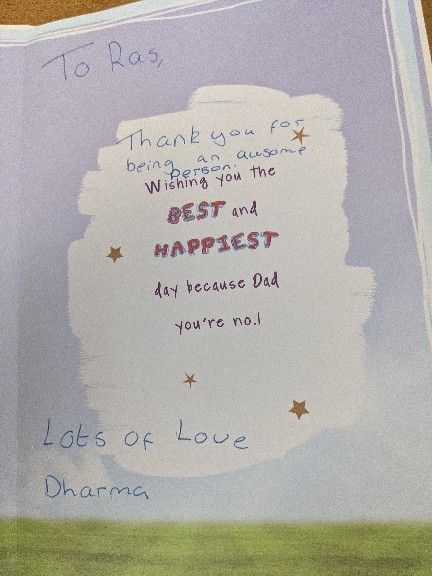 To Ras,
Thank you for
being an awsome
person.
Wishing you the
BEST and
HAPPIEST
day because Dad
you're no.1
Lots of Love
Dharma